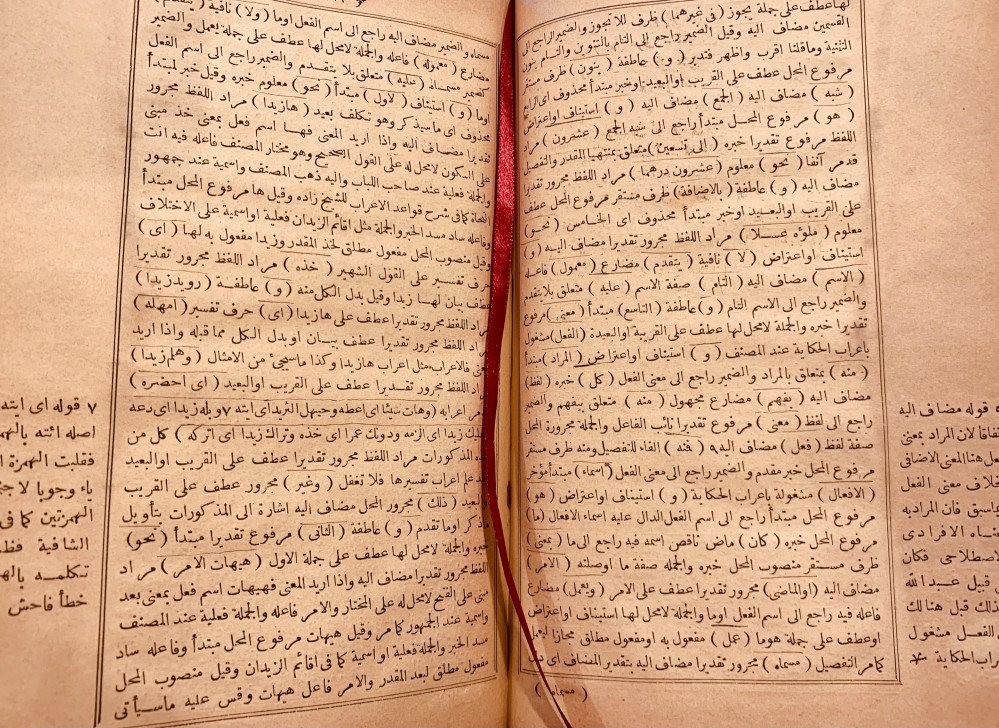 لها عطف على جملة يجوز ( فى غيرهما ) ظرف للايجوز والضمير الراجع الى
القسمين مضاف اليه وقيل الضمير راجع الى التام بالتنوين والتام بنون
التثنية وماقلنا اقرب واظهر فتدبر ( و ) عاطفة ( بنون ) ظرف مستقر
مرفوع المحل عطف على القريب اوالبعيد اوخبر مبتدأ محذوف اى الرابع
( شبه ) مضاف اليه ( الجمع ) مضاف اليه ( و ) استيناف اواعتراض
( هو ) مرفوع المحل مبتدأ راجع الى شبه الجمع ( عشرون ) مراد
اللفظ مرفوع تقديرا خبره ( الى تسعين ) متعلق بمنتهيا المقدر والتفصيل
قدمر آنفا ( نحو ) معلوم ( عشرون درهما ) مراد اللفظ مجرور تقديرا
مضاف اليه ( و ) عاطفة ( بالاضافة ) ظرف مستقر مرفوع المحل عطف
على القريب اوالبعيد اوخبر مبتدأ محذوف اى الخامس ( نحو )
معلوم ( ملؤه عسلا ) مراد اللفظ مجرور تقديرا مضاف اليه ( و )
استيناف اواعتراض ( لا ) نافية ( يتقدم ) مضارع ( معمول ) فاعله
( الاسم ) مضاف اليه ( التام ) صفة الاسم ( عليه ) متعلق بلايتقدم
والضمير راجع الى الاسم التام ( و ) عاطفة ( التاسع ) مبتدأ ( معنى ) مرفوع
تقديرا خبره والجملة لامحل لها عطف على القريبة اوالبعيدة ( الفعل ) مشغول
باعراب الحكاية عند المصنف ( و ) استيناف اواعتراض ( المراد ) مبتدأ
( منه ) متعلق بالمراد والضمير راجع الى معنى الفعل ( كل ) خبره ( لفظ )
مضاف اليه ( يفهم ) مضارع مجهول ( منه ) متعلق بيفهم والضمير
راجع الى لفظ ( معنى ) مرفوع تقديرا نائب الفاعل والجملة مجرورة المحل
صفة لفظ ( فعل ) مضاف اليه ٩ ( فمنه ) الفاء للتفصيل ومنه ظرف مستقر
مرفوع المحل خبر مقدم والضمير راجع الى معنى الفعل ( اسماء ) مبتدأ مؤخر
( الافعال ) مشغولة باعراب الحكاية ( و ) استيناف اواعتراض ( هو )
مرفوع المحل مبتدأ راجع الى اسم الفعل الدال عليه اسماء الافعال ( ما )
مرفوع المحل خبره ( كان ) ماض ناقص اسمه فيه راجع الى ما ( بمعنى )
ظرف مستقر منصوب المحل خبره والجملة صفة ما اوصلته ( الامر )
مضاف اليه ( اوالماضى ) مجرور تقديرا عطف على الامر ( ويعمل ) مضارع
فاعله فيه راجع الى اسم الفعل اوما والجملة لامحل لها استيناف اواعتراض
اوعطف على جملة هوما ( عمل ) مفعول به اومفعول مطلق مجازا ليعمل
كامر التفصيل ( مسماه ) مجرور تقديرا مضاف اليه بتقدير المضاف اى
( مسماه )
قوله مضاف اليه
مسماه والضمير مضاف اليه راجع الى اسم الفعل اوما ( ولا ) نافية ( يتقدم )
مضارع ( معموله ) فاعله والجملة لامحل لها عطف على جملة يعمل والضمير
كضمير مسماه ( عليه ) متعلق بلا يتقدم والضمير راجع الى اسم الفعل
اوما ( و ) استيناف ( لاول ) مبتدأ ( نحو ) معلوم خبره وقيل خبر لمبتدأ
محذوف اى ماسيذكر وهو تكلف بعيد ( هازيدا ) مراد اللفظ مجرور
تقديرا مضاف اليه واذا اريد المعنى فهما اسم فعل بمعنى خذ مبنى
على السكون لامحل له على القول الصحيح وهو مختار المصنف فاعله فيه انت
والجملة فعلية عند صاحب اللباب واليه ذهب المصنف واسمية عند جمهور
النحاة كما فى شرح قواعد الاعراب للشيخ زاده وقيل ها مرفوع المحل مبتدأ
وفاعله ساد مسد الخبر والجملة مثل اقائم الزيدان فعلية اواسمية على الاختلاف
وقيل منصوب المحل مفعول مطلق لخذ المقدر وزيدا مفعول به لها ( اى )
حرف تفسير على القول الشهير ( خذه ) مراد اللفظ مجرور تقديرا
عطف بيان لهازيدا وقيل بدل الكل منه ( و ) عاطفة ( رويدزيدا )
مراد اللفظ مجرور تقديرا عطف على هازيدا ( اى ) حرف تفسير ( امهله )
مراد اللفظ مجرور تقديرا عطف بيان او بدل الكل مما قبله واذا اريد
المعنى فالاعراب مثل اعراب هازيدا وكذا ماسيجئ من الامثال ( وهلم زيدا )
مراد اللفظ مجرور تقديرا عطف على القريب اوالبعيد ( اى احضره )
مر اعرابه ( وهات شيئا اى اعطه وحيهل الثريد اى ايته ٧ وبله زيدا اى دعه
وعليك زيدا اى الزمه ودونك عمرا اى خذه وتراك زيدا اى اتركه ) كل من
هذه المذكورات مراد اللفظ مجرور تقديرا عطف على القريب اوالبعيد
وقدعلم اعراب تفسيرها فلا تغفل ( وغير ) مجرور عطف على القريب
اوالبعيد ( ذلك ) مجرور المحل مضاف اليه اشارة الى المذكورات بتأويل
ماذكر اوما تقدم ( و ) عاطفة ( الثانى ) مرفوع تقديرا مبتدأ ( نحو )
خبره والجملة لامحل لها عطف على جملة الاول ( هيهات الامر ) مراد
اللفظ مجرور تقديرا مضاف اليه واذا اريد المعنى فهيهات اسم فعل بمعنى بعد
مبنى على الفتح لامحل له على المختار والامر فاعله والجملة فعلية عند المصنف
واسمية عند الجمهور كامر وقيل هيهات مرفوع المحل مبتدأ وفاعله ساد
مسد الخبر والجملة فعلية او اسمية كما فى اقائم الزيدان وقيل منصوب المحل
مفعول مطلق لبعد المقدر والامر فاعل هيهات وقس عليه ماسيأتى
٧ قوله اى ايته
اصله ائته بالهمزتين
فقلبت الهمزة
ياء وجوبا
الهمزتين كما فى
الشافية
تتكلمه
خطأ فاحش